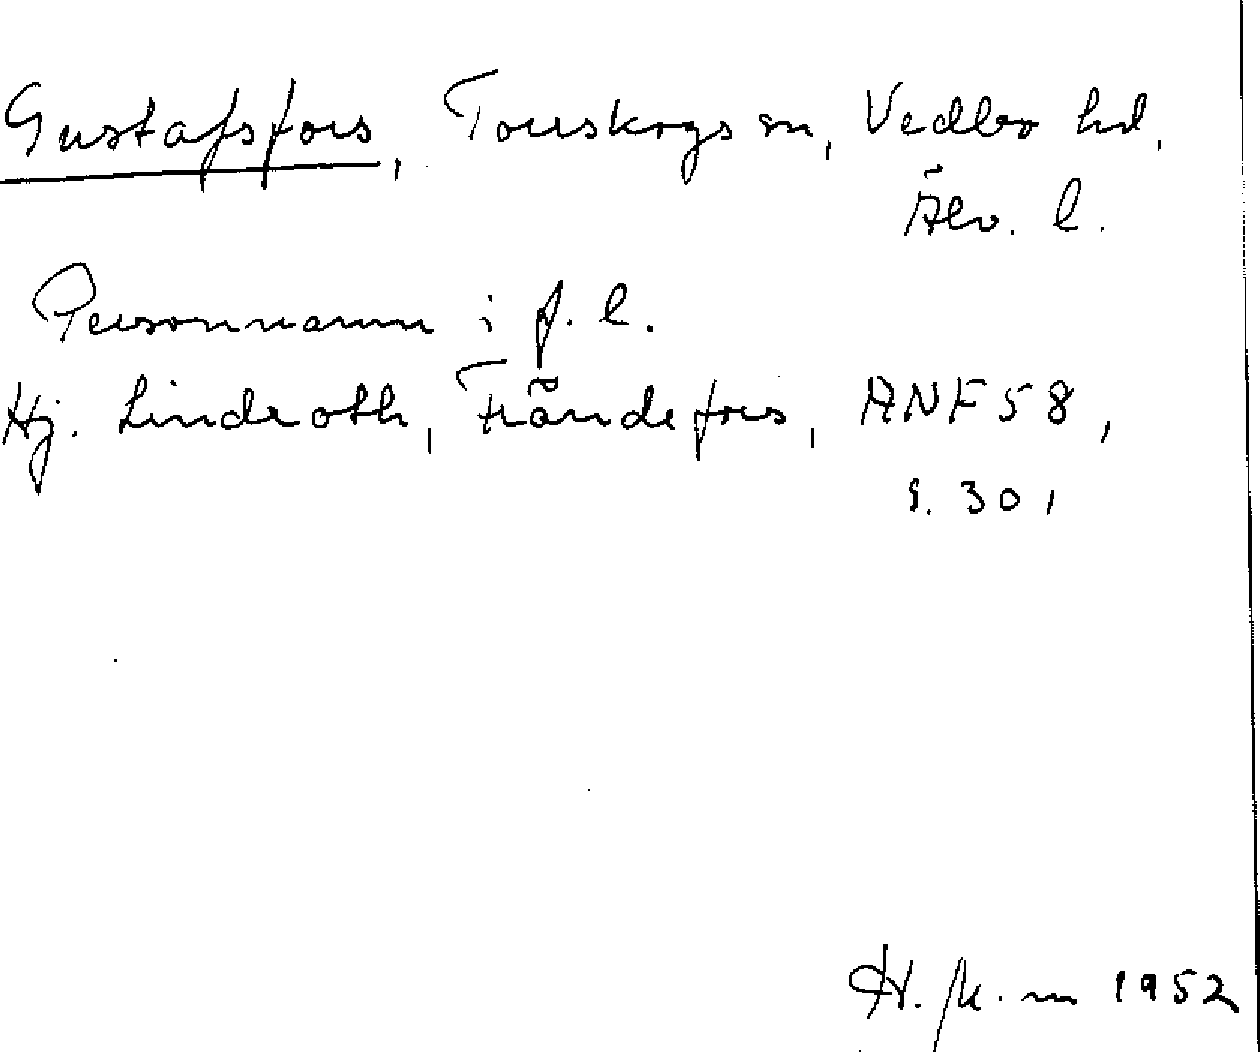 Gustafsfors, Torrskogs sn, Vedbo hd,
Älv. l.
Personnamn i f. l.
Hj. Lindroth, Frändefors, ANF 58,
s. 30,
1952